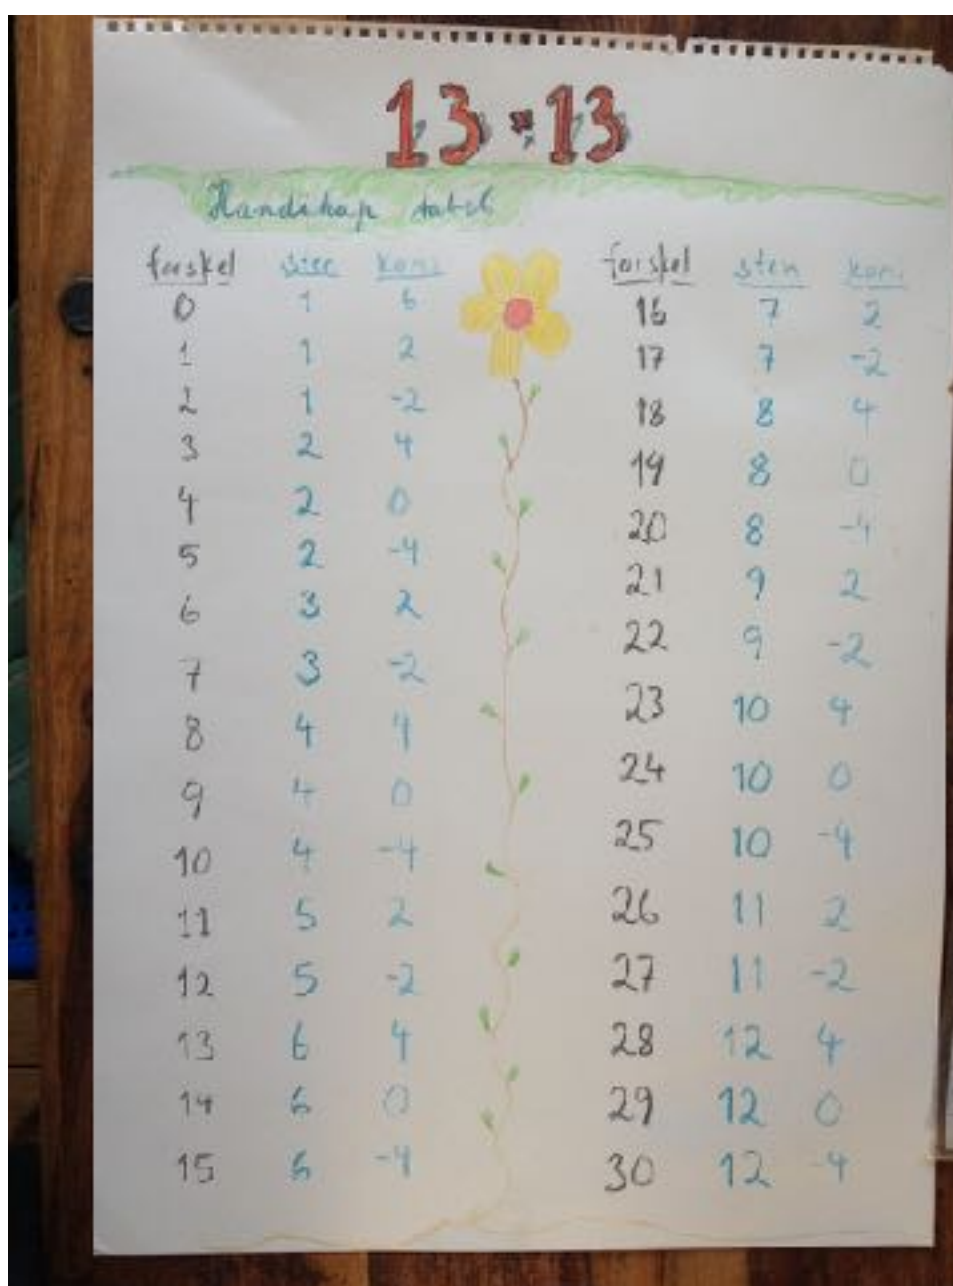 13 * 13
Handikap tabel
forskel sten komi
0 1 6
1 1 2
2 1 -2
3 2 4
4 2 0
5 2 -4
6 3 2
7 3 -2
8 4 4
9 4 0
10 4 -4
11 5 2
12 5 -2
13 6 4
14 6 0
15 6 -4
forskel sten komi
16 7 2
17 7 -2
18 8 4
19 8 0
20 8 -4
21 9 2
22 9 -2
23 10 4
24 10 0
25 10 -4
26 11 2
27 11 -2
28 12 4
29 12 0
30 12 -4